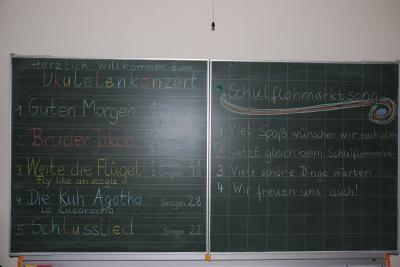 Herzlich willkommen zum
Ukulelenkonzert
1. Guten Morgen
2. Bruder Jakob
3. Weite die Flügel
Fly like an eagle
2 Singen 15
4. Die Kuh Agatha
La Cucaracha
Singen 28
5. Schlusslied
Singen 22
Schulflohmarktsong
1 Viel Spaß wünschen wir euch allen
2 jetzt gleich beim Schulflohmarkt
3 Viele schöne Dinge warten
4 Wir freuen uns auch!